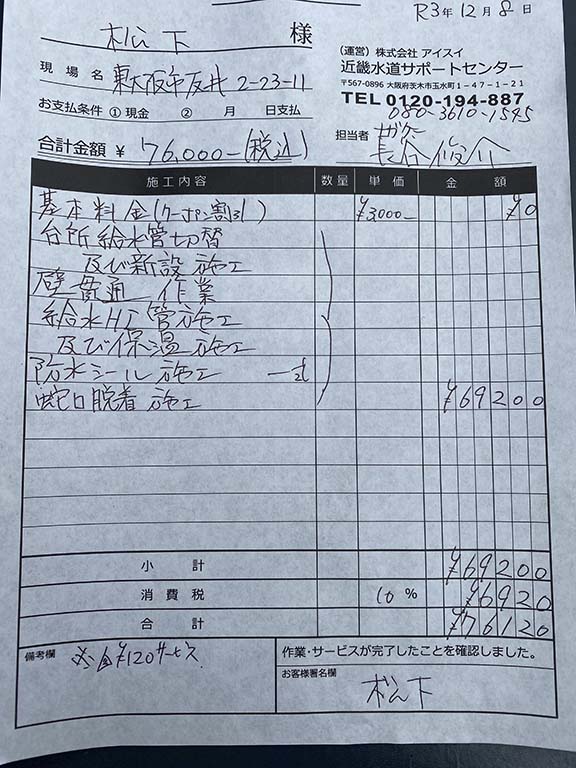 R3年12月8日
松下 様
(運営) 株式会社 アイスイ
現場名 東大阪市友井 2-23-11
近畿水道サポートセンター
〒567-0896 大阪府茨木市玉水町1-47-1-21
お支払条件 ①現金 ② 月 日支払
TEL 0120-194-887
080-3610-1545
合計金額 ¥ 76,000-(税込)
担当者 長谷 俊介
施工内容 数量 単価 金額
基本料金(クーポン割引) ¥3,000- ¥0
台所給水管切替
及び新設 施工
壁貫通 作業
給水HI管施工
及び保温 施工
防水シール施工 一式
蛇口脱着 施工 ¥69200
小計 ¥69200
消費税 10% ¥6920
合計 ¥76120
備考欄 ¥120サービス
作業・サービスが完了したことを確認しました。
お客様署名欄
松下